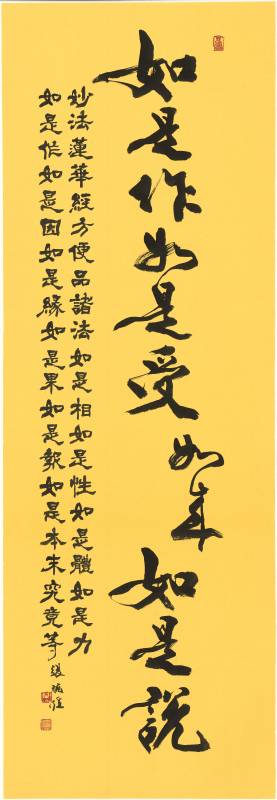 如是作如是受如來如是説
妙法蓮華經方便品諸法如是相如是性如是體如是力
如是作如是因如是緣如是果如是報如是本末究竟等